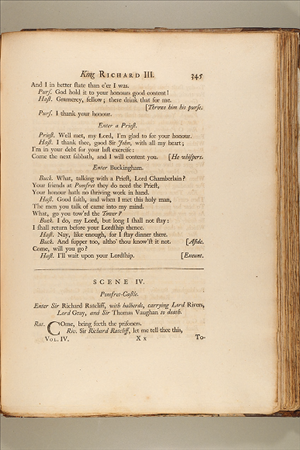 King RICHARD III. 345
And I in better state than e'er I was.
Purs. God hold it to your honours good content!
Hast. Gramercy, fellow; there drink that for me.
[Throws him his purse.
Purs. I thank your honour.
Enter a Priest.
Priest. Well met, my Lord, I'm glad to see your honour.
Hast. I thank thee, good Sir John, with all my heart;
I'm in your debt for your last exercise:
Come the next sabbath, and I will content you. [He whispers.
Enter Buckingham.
Buck. What, talking with a Priest, Lord Chamberlain?
Your friends at Pomfret they do need the Priest,
Your honour hath no shriving work in hand.
Hast. Good faith, and when I met this holy man,
The men you talk of came into my mind.
What, go you tow'rd the Tower?
Buck. I do, my Lord, but long I shall not stay:
I shall return before your Lordship thence.
Hast. Nay, like enough, for I stay dinner there.
Buck. And supper too, altho' thou know'st it not. [Aside.
Come, will you go?
Hast. I'll wait upon your Lordship. [Exeunt.
SCENE IV.
Pomfret-Castle.
Enter Sir Richard Ratcliff, with halberds, carrying Lord Rivers,
Lord Gray, and Sir Thomas Vaughan to death.
Rat. COme, bring forth the prisoners.
Riv. Sir Richard Ratcliff, let me tell thee this,
VOL. IV. X x To-